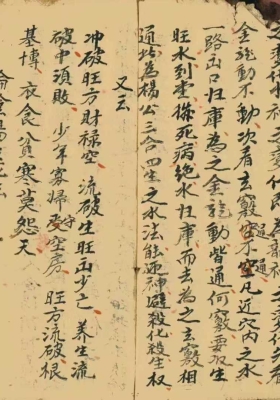 金龍動不動次看玄竅生不空凡近穴內之水
一路出口归庫為之金龍動皆通何竅要双生
旺水到堂撩死病絶水归庫而去為之玄竅相
通也為楊公三合四生之水法能迎神避殺化殺生权
又云
冲破旺方財禄空 流破生旺出少亡 養生流
破中項敗 少年寡婦守空房 旺方流破根
基博 衣食貧寒莫怨天